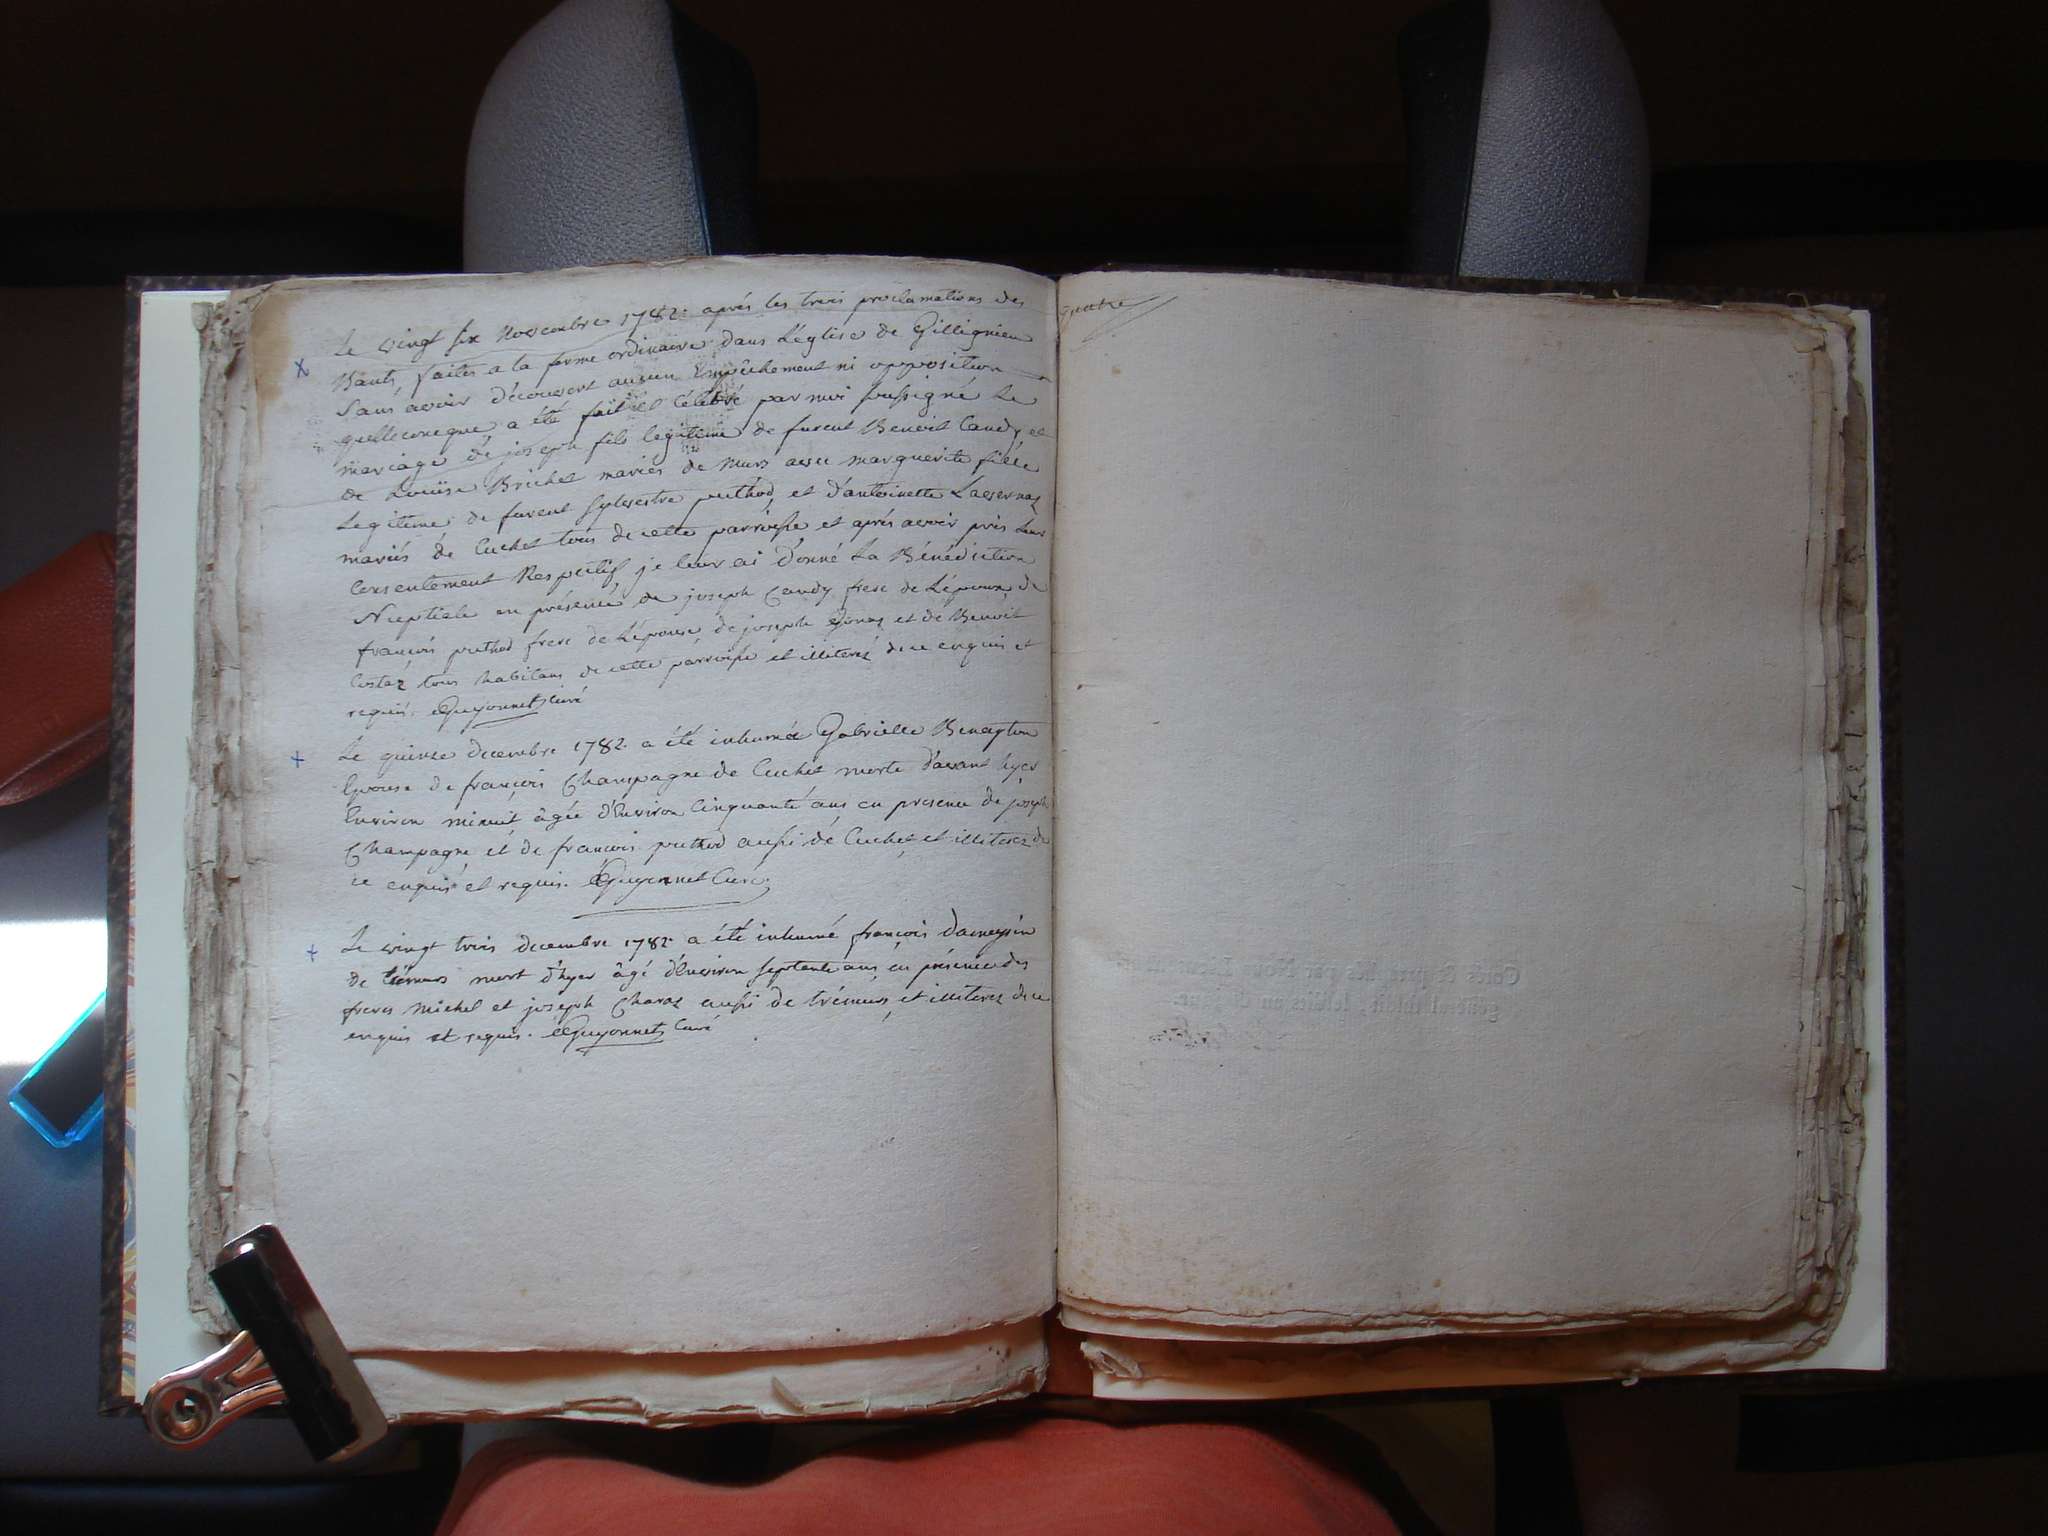 Le vingt six Novembre 1782. aprés les trois proclamations des
Bants faites a la forme ordinaire dans L'église de Gillignieu
Sans avoir découvert aucun Empêchement ni opposition
quelleconque a été fait et célébré par moi soussigné Le
mariage de joseph fils legitime de furent Benoit Candy et
de Louise Brichet mariés de Murs avec marguerite fille
Legitime de furent Sylvestre puthod et d'antoinette
mariés de Cuchet tous de cette parroisse et aprés avoir pris Leur
Consentement Respectif je leur ai donné La Bénédiction
Nuptiale en présence de joseph Candy frere de L'époux, de
françois puthod frere de L'épouse, de joseph et de Benoit
Costaz tous habitans de cette parroisse et illiterés de ce enquis et
requis. Guyonnet Curé
Le quinze decembre 1782. a été inhumée Gabrielle
Epouse de françois Champagne de Cuchet morte d'avant hyer
Environ minuit âgée d'Environ Cinquante ans en presence de joseph
Champagne et de francois puthod aussi de Cuchet et illiterez de
ce enquis et requis. Guyonnet Curé.
Le vingt trois decembre 1782. a été inhumé françois
de trémurs mort d'hyer âgé d'Environ septante ans en présence des
freres Michel et joseph Charaz aussi de trémurs et illiterez de ce
enquis et requis. Guyonnet Curé